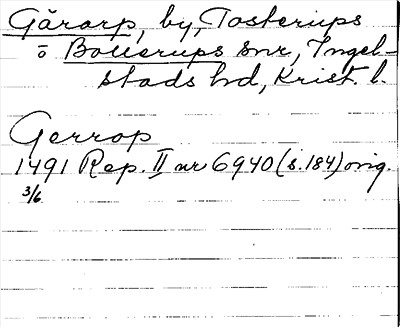 Gärarp, by, Tosterups
o Bollerups snr, Ingel-
stads hd, Krist. l.
Gerrop
1491 Rep. II nr 6940 (s. 184) orig.
3/6